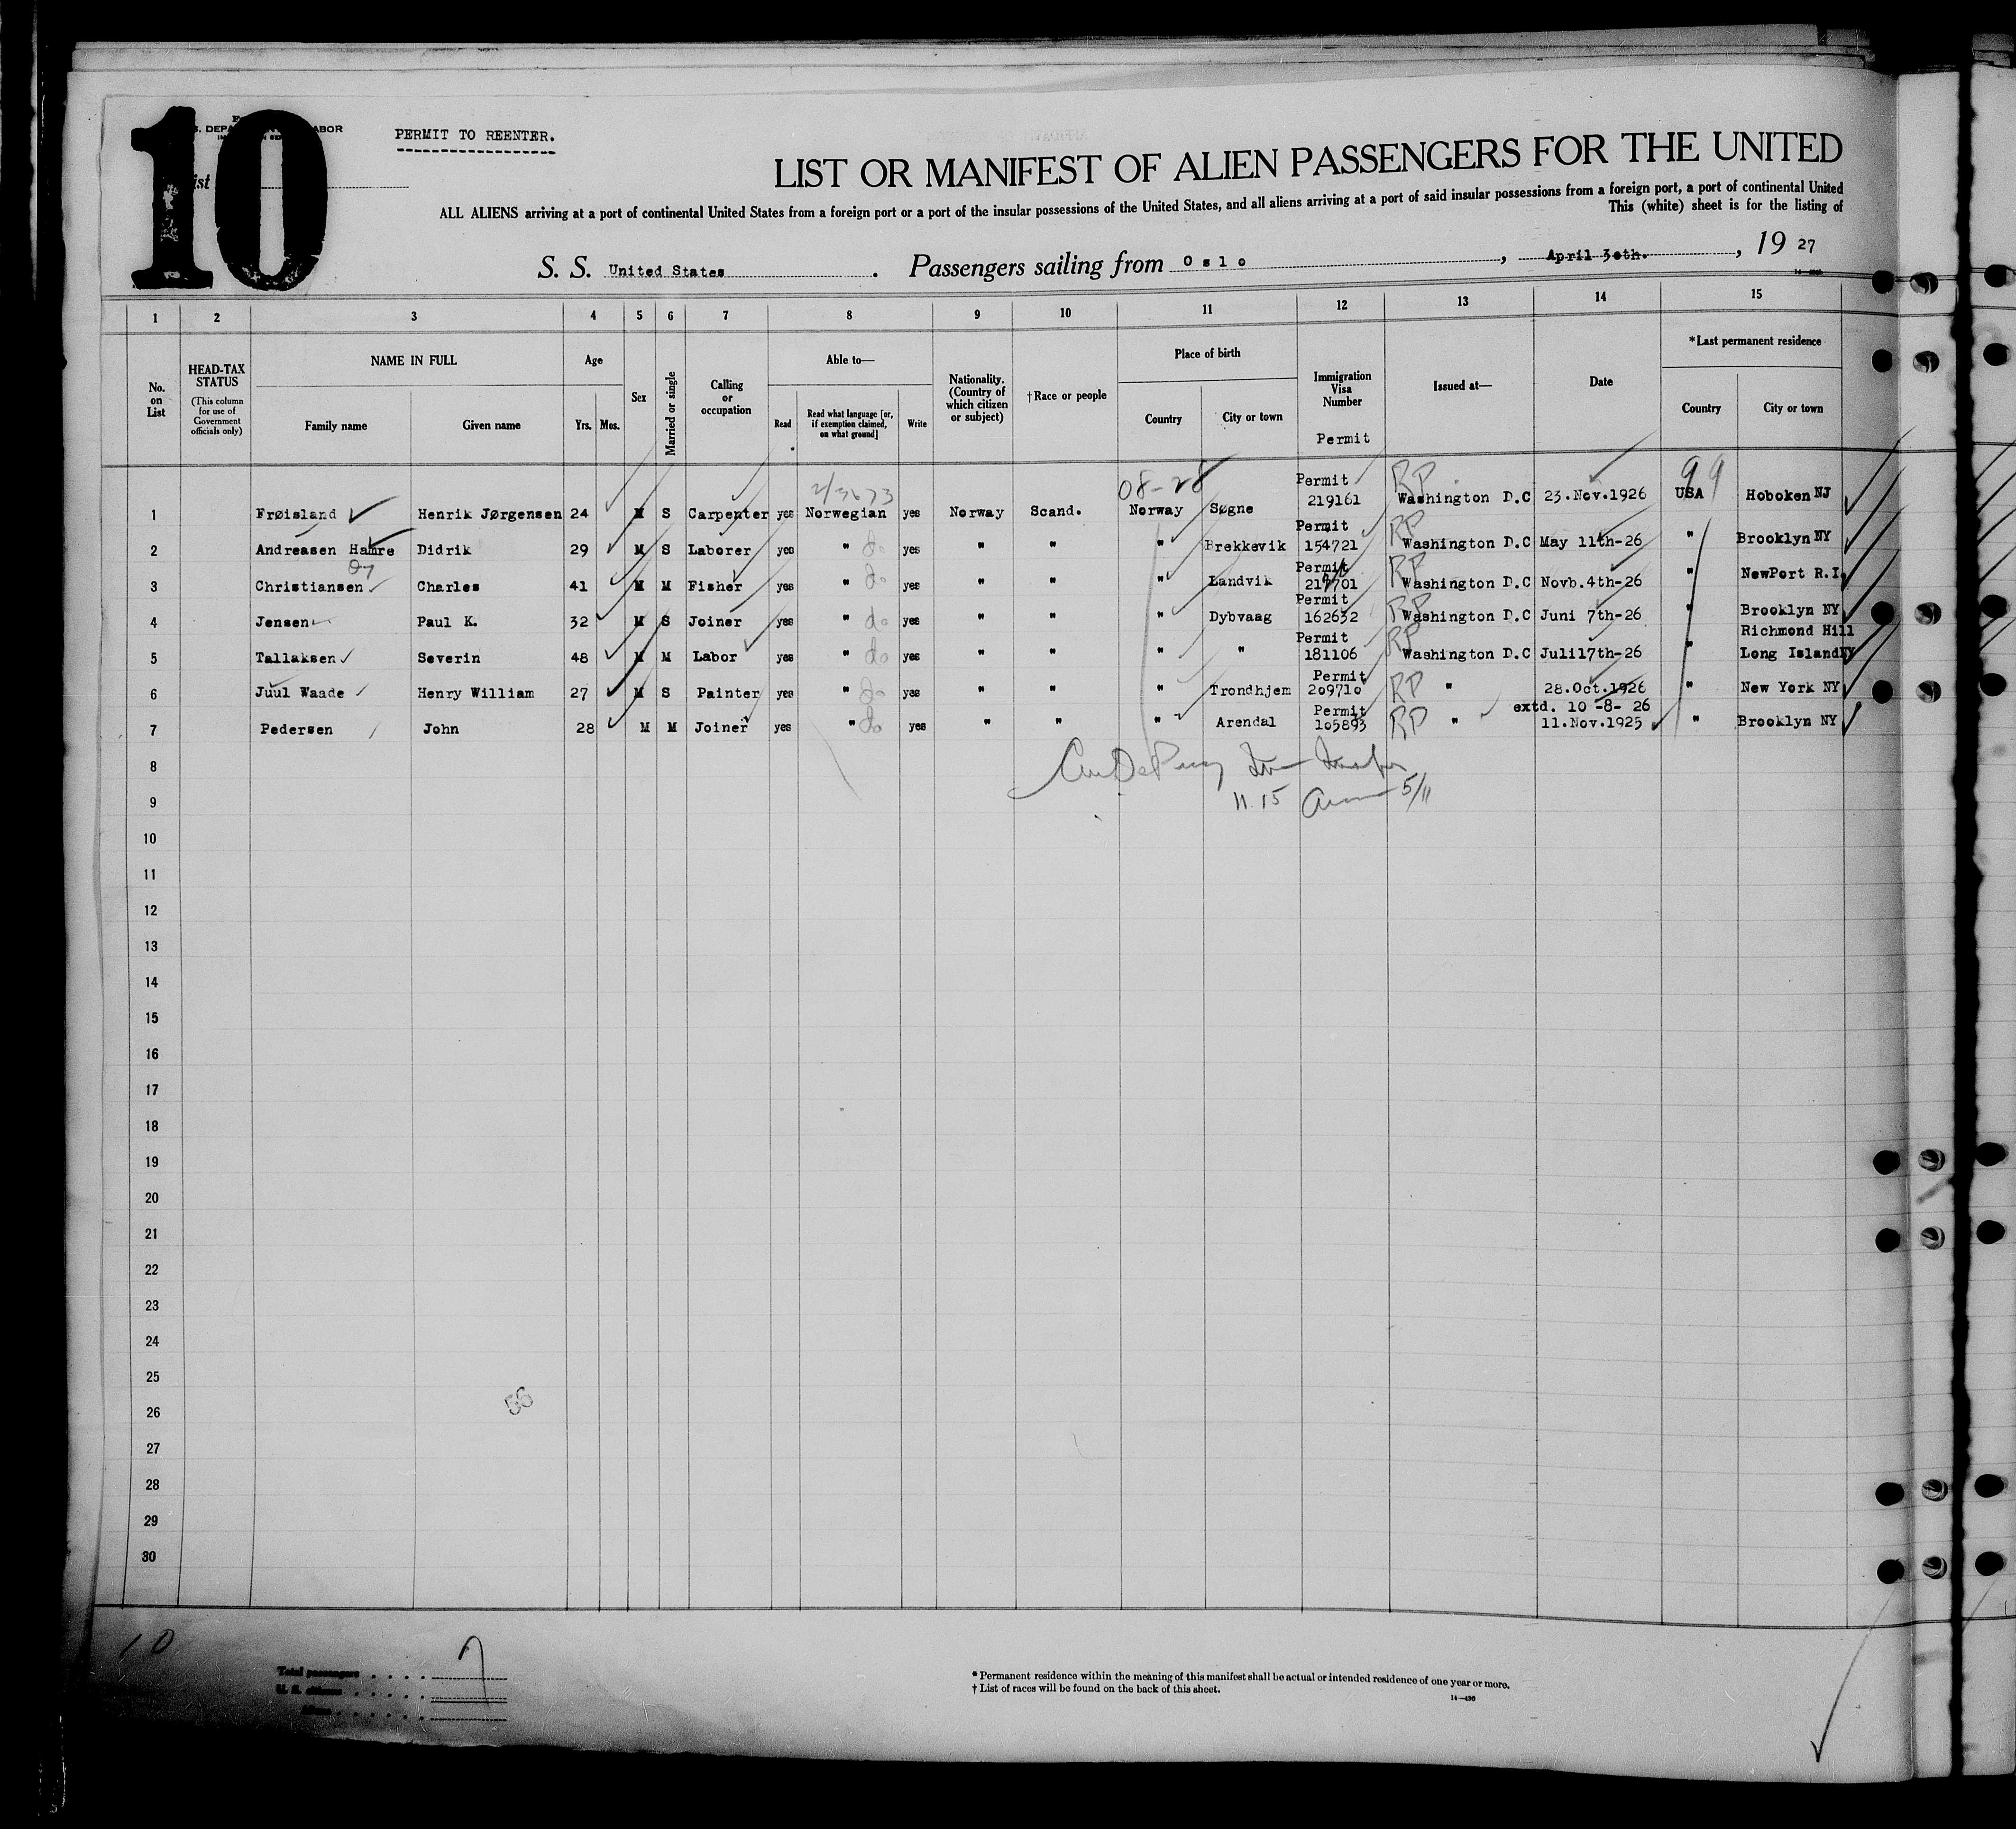 10
PERMIT TO REENTER.
LIST OR MANIFEST OF ALIEN PASSENGERS FOR THE UNITED
ALL ALIENS arriving at a port of continental United States from a foreign port or a port of the insular possessions of the United States, and all aliens arriving at a port of said insular possessions from a foreign port, a port of continental United
This (white) sheet is for the listing of
S. S. United States . Passengers sailing from Oslo , April 30th. , 19 27
1 2 3 4 5 6 7 8 9 10 11 12 13 14 15
No. on List
HEAD-TAX STATUS (This column for use of Government officials only)
NAME IN FULL Family name Given name
Age Yrs. Mos.
Sex
Married or single
Calling or occupation
Able to— Read Read what language [or, if exemption claimed, on what ground] Write
Nationality. (Country of which citizen or subject)
†Race or people
Place of birth Country City or town
Immigration Visa Number Permit
Issued at—
Date
*Last permanent residence Country City or town
2/3673 08-28 99
1 Frøisland Henrik Jørgensen 24 M S Carpenter yes Norwegian yes Norway Scand. Norway Søgne Permit 219161 RP Washington D.C 23.Nov.1926 USA Hoboken NJ
2 Andreasen Hamre Didrik 29 M S Laborer yes " do yes " " " Brekkevik Permit 154721 RP Washington D.C May 11th-26 " Brooklyn NY
3 Christiansen Charles 41 M M Fisher yes " do yes " " " Landvik Permit 217701 RP Washington D.C Novb.4th-26 " NewPort R.I.
4 Jensen Paul K. 32 M S Joiner yes " do yes " " " Dybvaag Permit 162632 RP Washington D.C Juni 7th-26 " Brooklyn NY
5 Tallaksen Severin 48 M M Labor yes " do yes " " " " Permit 181106 RP Washington D.C Juli17th-26 " Richmond Hill Long Island NY
6 Juul Waade Henry William 27 M S Painter yes " do yes " " " Trondhjem Permit 209710 RP " 28.Oct.1926 " New York NY
7 Pedersen John 28 M M Joiner yes " do yes " " " Arendal Permit 105893 RP " extd. 10 -8- 26 11.Nov.1925 " Brooklyn NY
8
9 11 15 5/11
10
11
12
13
14
15
16
17
18
19
20
21
22
23
24
25
26 56
27
28
29
30
10
Total passengers 7
U. S. citizens
Aliens
* Permanent residence within the meaning of this manifest shall be actual or intended residence of one year or more.
† List of races will be found on the back of this sheet.
14—430